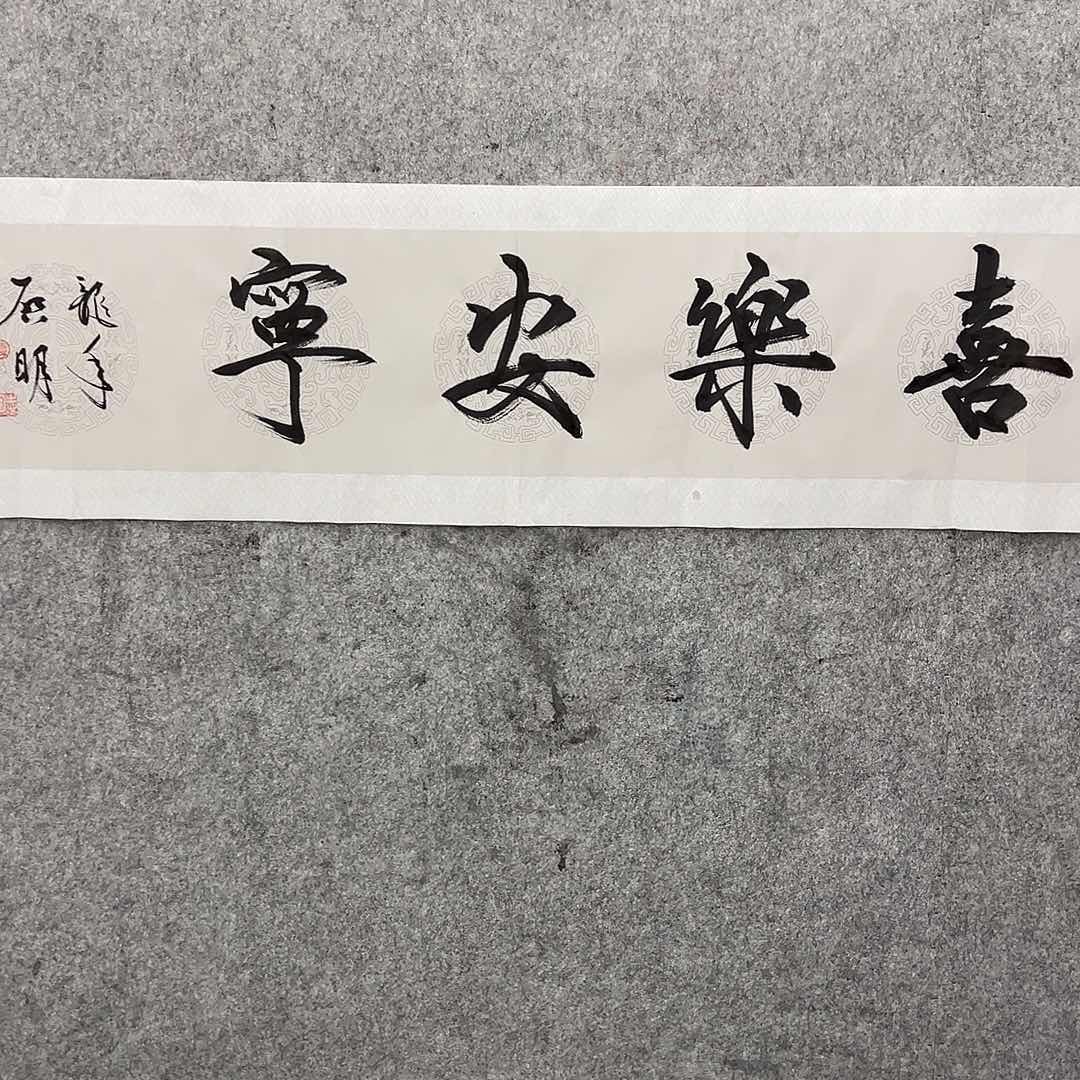 喜樂安寧
龍年
启明